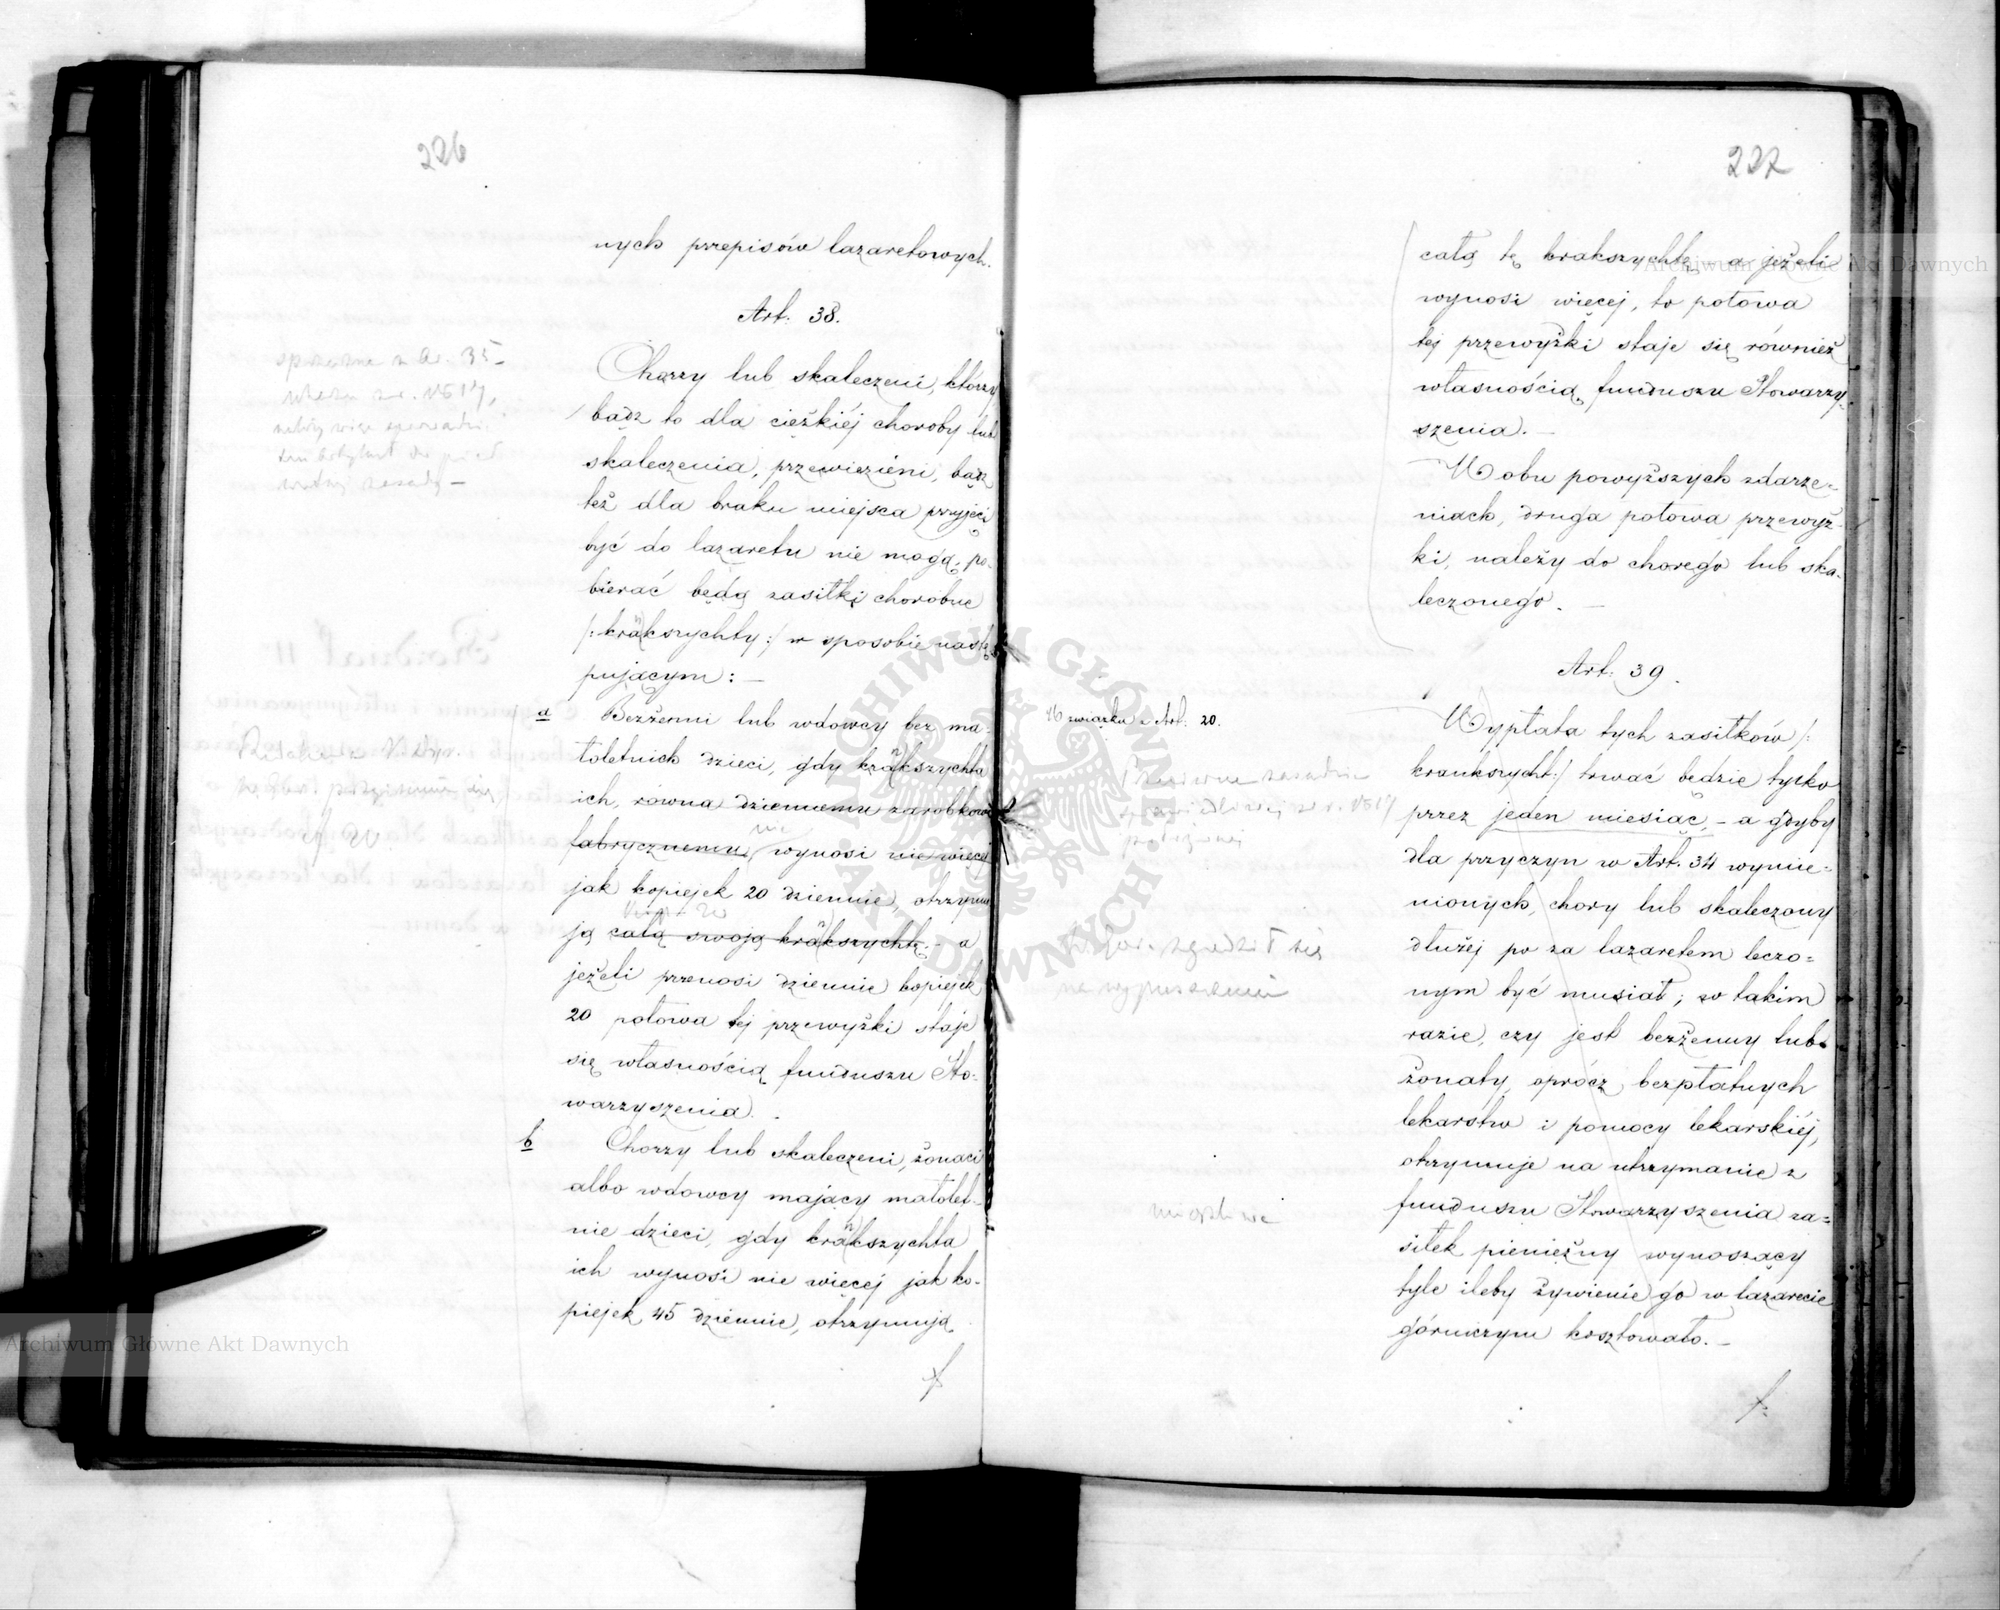 226
nych przepisów lazaretowych.
Art. 38.
Chorzy lub skaleczeni, którzy
bądź to dla ciężkiéj choroby lub
skaleczenia, przewiezieni, bądź
też dla braku miejsca przyjęci
być do lazaretu nie mogą, po-
bierać będą zasiłki chorobne
/: kränkszychty :/ w sposobie nastę
pującym: —
a Bezżenni lub wdowcy bez ma-
łoletnich dzieci, gdy kränkszychta
ich, równa dziennemu zarobkowi
fabrycznemu, nie wynosi nie więcej
jak kopiejek 20 dziennie, otrzymu
ją całą swoją kränkszychtę. - a
jeżeli przenosi dziennie kopiejek
20 połowa tej przewyżki staje
się własnością funduszu Sto-
warzyszenia.
b Chorzy lub skaleczeni, żonaci
albo wdowcy mający małolet-
nie dzieci, gdy kränkszychta
ich wynosi nie więcej jak ko-
piejek 45 dziennie, otrzymują
227
całą tę krakszychtę - a jeżeli
wynosi więcej, to połowa
tej przewyżki staje się również
własnością funduszu Stowarzy-
szenia. —
W obu powyższych zdarze-
niach, druga połowa przewyż-
ki, należy do chorego lub ska-
leczonego. —
Art. 39.
W związku z Art. 20.
Wypłata tych zasiłków /:
krankszycht :/ trwać będzie tylko
przez jeden miesiąc, - a gdyby
dla przyczyn w Art. 34 wymie-
nionych, chory lub skaleczony
dłużej po za lazaretem leczo-
nym być musiał; w takim
razie, czy jest bezżenny lub
żonaty, oprócz bezpłatnych
lekarstw i pomocy lekarskiéj,
otrzymuje na utrzymanie z
funduszu Stowarzyszenia za-
siłek pieniężny wynoszący
tyle ileby żywienie go w lazarecie
górniczym kosztowało. —
zgodził się
na wypuszczenie
Archiwum Główne Akt Dawnych
Archiwum Główne Akt Dawnych
ARCHIWUM GŁÓWNE AKT DAWNYCH